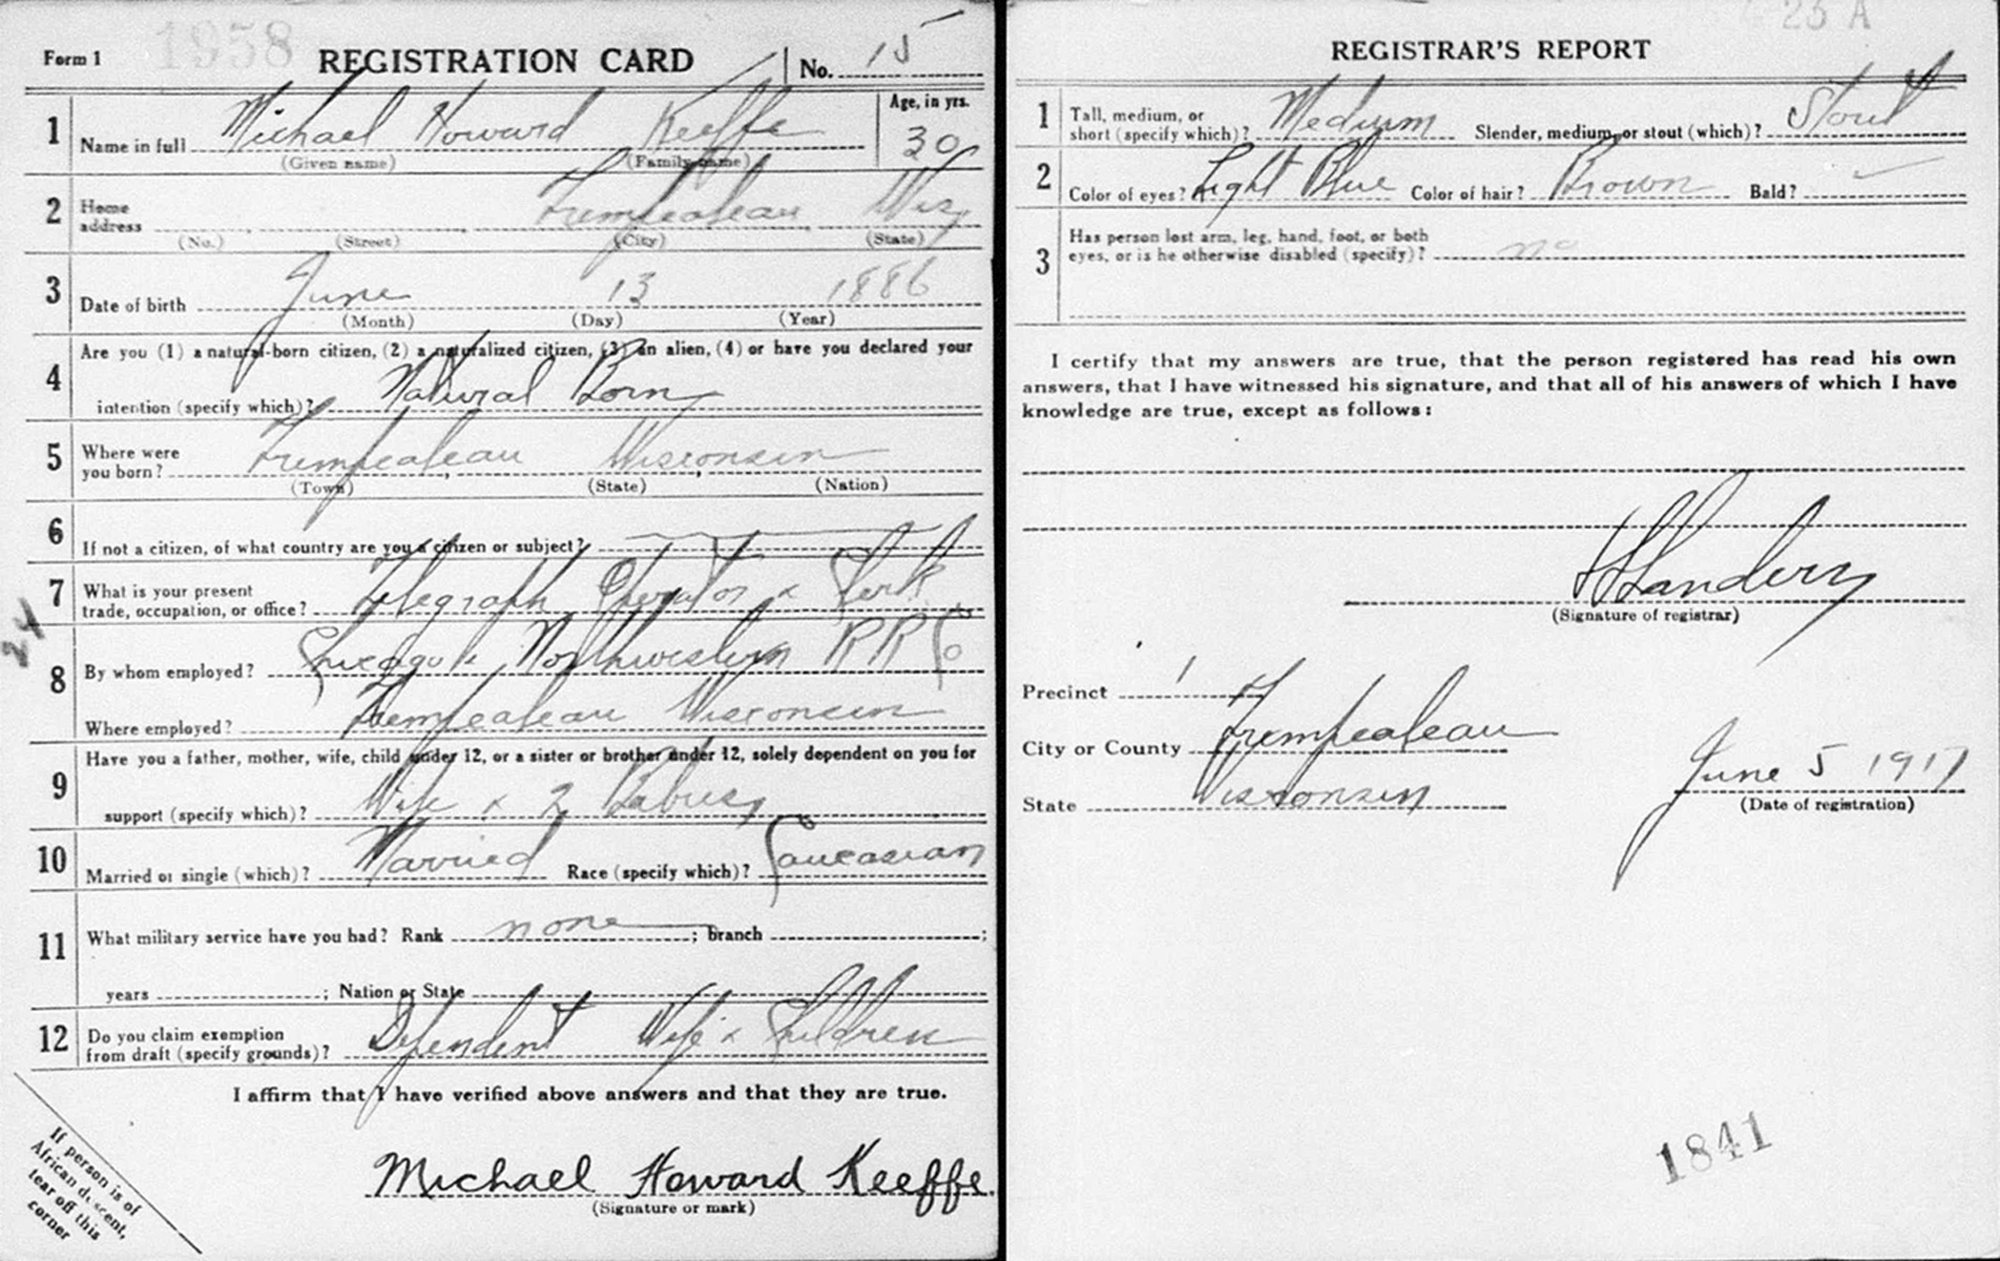 1958
Form 1 REGISTRATION CARD No. 15
1 Name in full Michael Howard Keeffe Age, in yrs. 30
(Given name) (Family name)
2 Home address Trempealeau Wis,
(No.) (Street) (City) (State)
3 Date of birth June 13 1886
(Month) (Day) (Year)
4 Are you (1) a natural-born citizen, (2) a naturalized citizen, (3) an alien, (4) or have you declared your
intention (specify which)? Natural Born
5 Where were you born? Trempealeau Wisconsin
(Town) (State) (Nation)
6 If not a citizen, of what country are you a citizen or subject?
7 What is your present trade, occupation, or office? Telegraph Operator & Clerk
24
8 By whom employed? Chicago & Northwestern RR Co
Where employed? Trempealeau Wisconsin
9 Have you a father, mother, wife, child under 12, or a sister or brother under 12, solely dependent on you for
support (specify which)? Wife & 2 Babies
10 Married or single (which)? Married Race (specify which)? Caucasian
11 What military service have you had? Rank none ; branch ;
years ; Nation or State
12 Do you claim exemption from draft (specify grounds)? Dependent Wife & Children
I affirm that I have verified above answers and that they are true.
Michael Howard Keeffe.
(Signature or mark)
If person is of
African descent,
tear off this
corner
25 A
REGISTRAR'S REPORT
1 Tall, medium, or short (specify which)? Medium Slender, medium, or stout (which)? Stout
2 Color of eyes? Light Blue Color of hair? Brown Bald?
3 Has person lost arm, leg, hand, foot, or both
eyes, or is he otherwise disabled (specify)? no
I certify that my answers are true, that the person registered has read his own
answers, that I have witnessed his signature, and that all of his answers of which I have
knowledge are true, except as follows:
(Signature of registrar)
Precinct 1
City or County Trempealeau
State Wisconsin
June 5 1917
(Date of registration)
1841